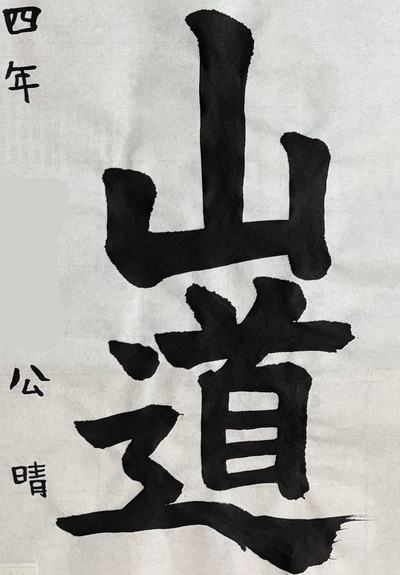 山道
四年
公晴